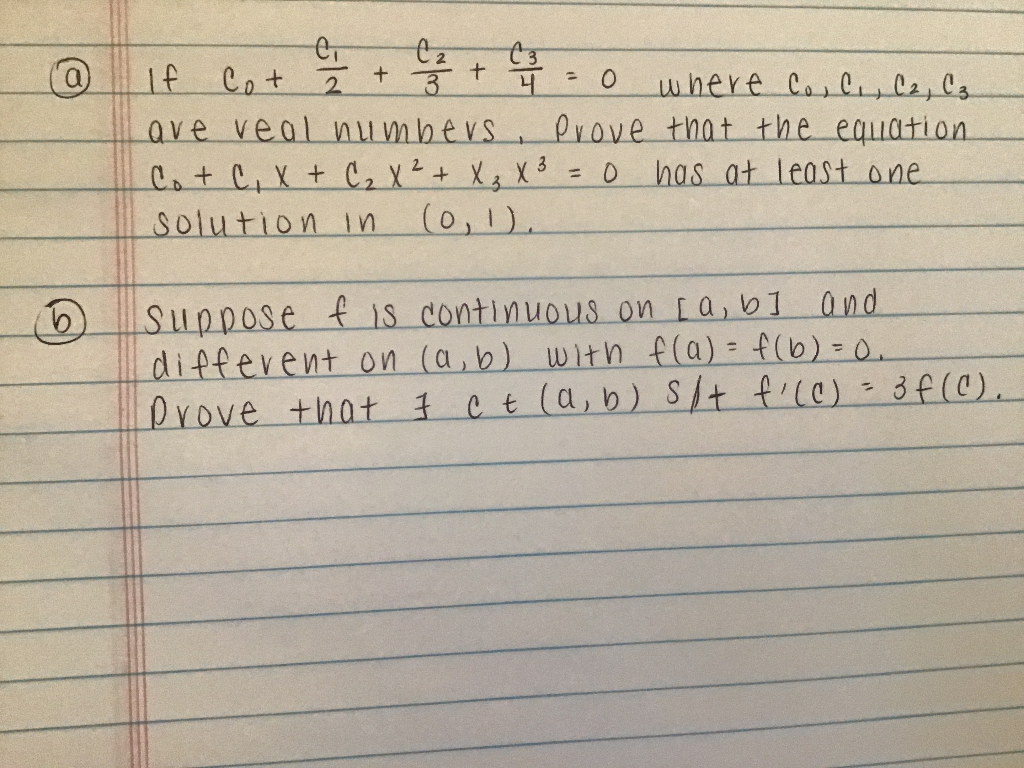 ⓐ If C₀ + C₁/2 + C₂/3 + C₃/4 = 0 where C₀, C₁, C₂, C₃
are real numbers, Prove that the equation
C₀ + C₁ X + C₂ X² + X₃ X³ = 0 has at least one
solution in (0, 1).
ⓑ Suppose f is continuous on [a, b] and
different on (a, b) with f(a) = f(b) = 0.
Prove that ∃ c ∈ (a, b) s/t f'(c) = 3f(c).